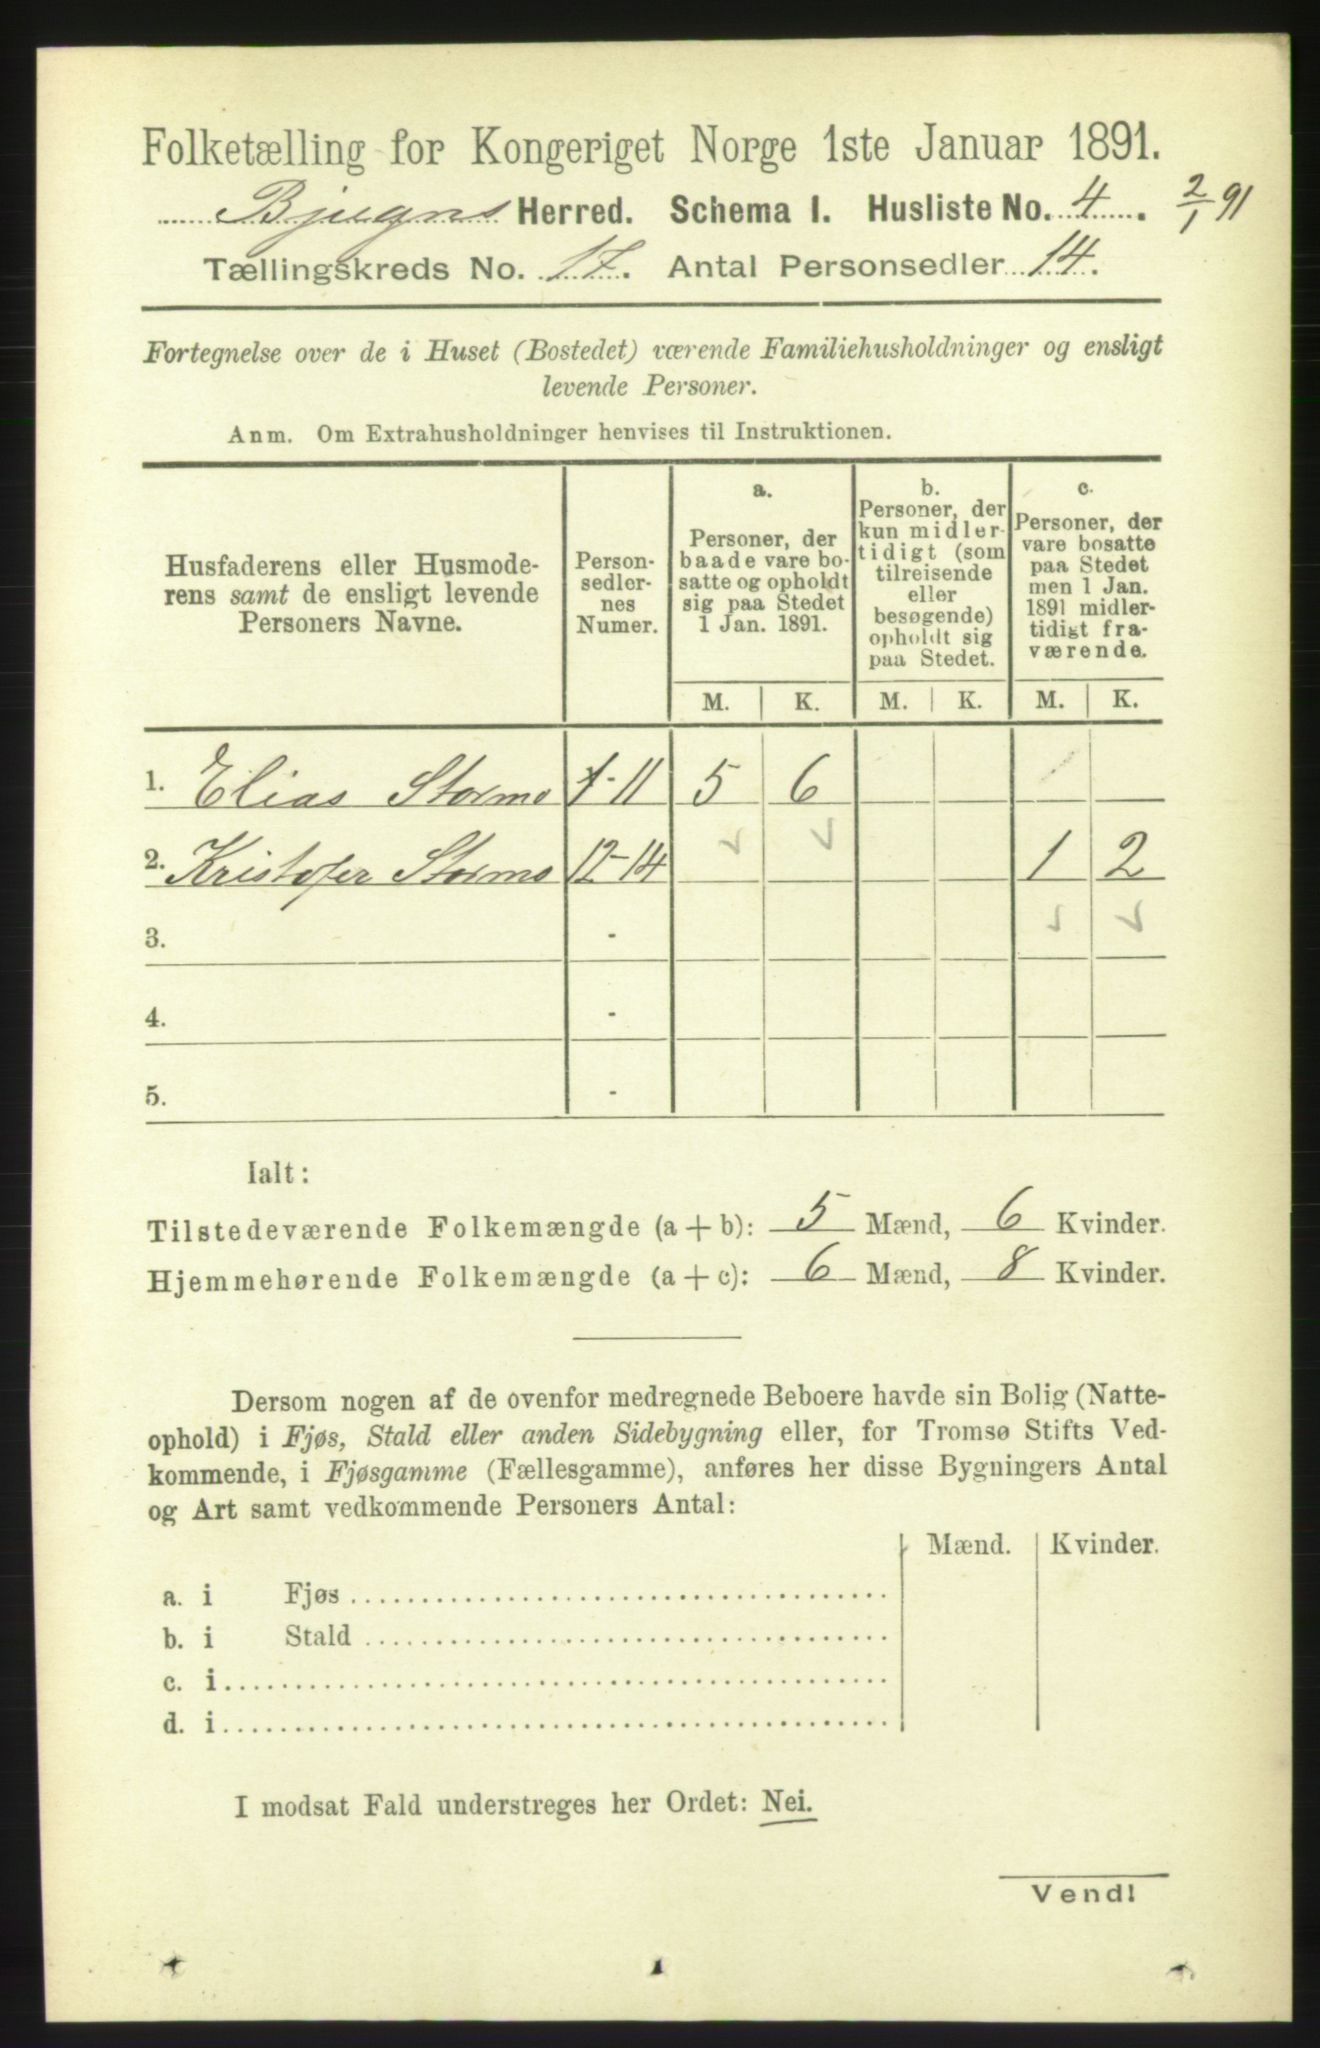 Folketælling for Kongeriget Norge 1ste Januar 1891.
Bjugns Herred. Schema I. Husliste No. 4. 2/1 91
Tællingskreds No. 17. Antal Personsedler 14.
Fortegnelse over de i Huset (Bostedet) værende Familiehusholdninger og ensligt
levende Personer.
Anm. Om Extrahusholdninger henvises til Instruktionen.
Husfaderens eller Husmode-
rens samt de ensligt levende
Personers Navne.
Person-
sedler-
nes
Numer.
a.
Personer, der
baade vare bo-
satte og opholdt
sig paa Stedet
1 Jan. 1891.
b.
Personer, der
kun midler-
tidigt (som
tilreisende
eller
besøgende)
opholdt sig
paa Stedet.
c.
Personer, der
vare bosatte
paa Stedet
men 1 Jan.
1891 midler-
tidigt fra-
værende.
M. K. M. K. M. K.
1. Elias Stormo 1-11 5 6
2. Kristofer Stormo 12-14 1 2
3. -
4. -
5. -
Ialt:
Tilstedeværende Folkemængde (a + b): 5 Mænd, 6 Kvinder.
Hjemmehørende Folkemængde (a + c): 6 Mænd, 8 Kvinder.
Dersom nogen af de ovenfor medregnede Beboere havde sin Bolig (Natte-
ophold) i Fjøs, Stald eller anden Sidebygning eller, for Tromsø Stifts Ved-
kommende, i Fjøsgamme (Fællesgamme), anføres her disse Bygningers Antal
og Art samt vedkommende Personers Antal:
Mænd. Kvinder.
a. i Fjøs
b. i Stald
c. i
d. i
I modsat Fald understreges her Ordet: Nei.
Vend!